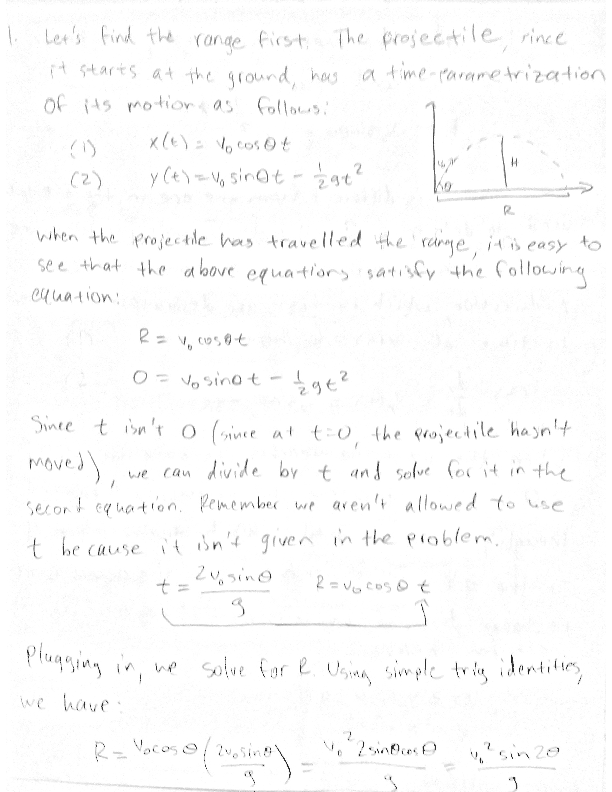 1. Let's find the range first. The projectile, since
it starts at the ground, has a time-parametrization
of its motion as follows:
(1) x(t) = v₀ cosθt
(2) y(t) = v₀ sinθt - ½gt²
v₀
θ
H
R
When the projectile has travelled the range, it is easy to
see that the above equations satisfy the following
equation:
R = v₀ cosθt
0 = v₀ sinθt - ½gt²
Since t isn't 0 (since at t=0, the projectile hasn't
moved), we can divide by t and solve for it in the
second equation. Remember we aren't allowed to use
t because it isn't given in the problem.
t = 2v₀sinθ/g R = v₀ cosθ t
Plugging in, we solve for R. Using simple trig identities,
we have:
R = v₀cosθ(2v₀sinθ/g) = v₀²2sinθcosθ/g = v₀² sin2θ/g